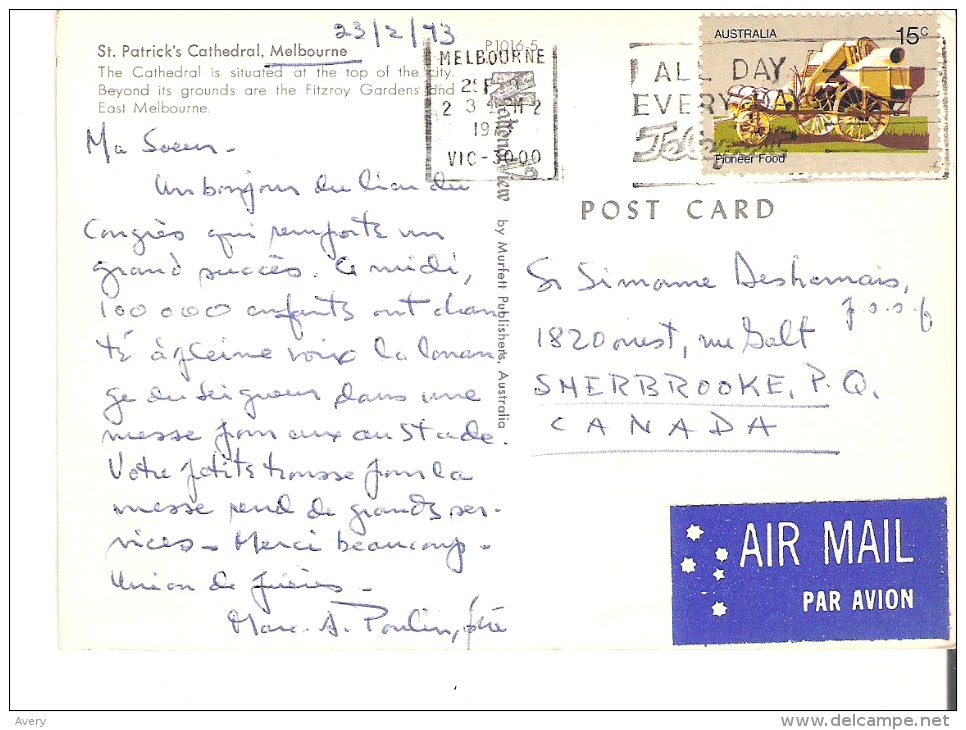 23/2/73
St. Patrick's Cathedral, Melbourne
The Cathedral is situated at the top of the city.
Beyond its grounds are the Fitzroy Gardens and
East Melbourne.
P1016-5
Ma Soeur -
Un bonjour du lieu du
Congrès qui remporte un
grand succès. Ce midi,
100 000 enfants ont chan
té à pleine voix la louan
ge du Seigneur dans une
messe pour eux au Stade.
Votre petite trousse pour la
messe rend de grands ser-
vices - Merci beaucoup -
Union de prières -
Marc-A. Poulin, ptre
NattonaView by Murfett Publishers, Australia
MELBOURNE
VIC-3000
ALL DAY
EVERY DAY
AUSTRALIA 15c
Pioneer Food
POST CARD
Sr Simone Desharnais,
f.s.s.f
1820 ouest, rue Galt
SHERBROOKE, P.Q.
CANADA
AIR MAIL
PAR AVION
Avery
delcampe.net